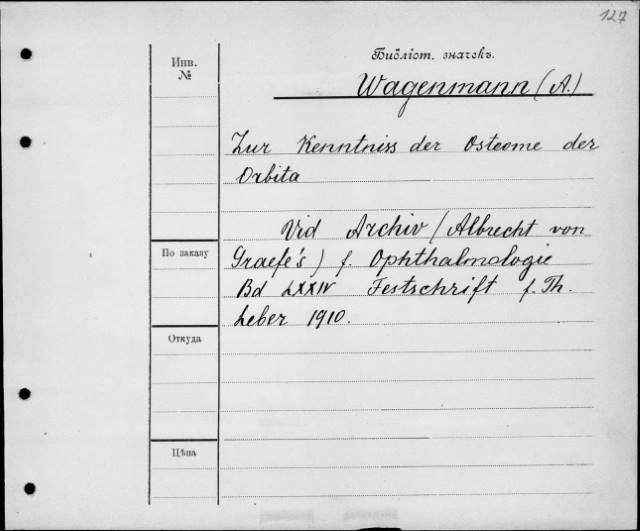 127
Инв.
№
Библіот. значекъ.
Wagenmann (A.)
Zur Kenntniss der Osteome der
Orbita
Vid Archiv (Albrecht von
По заказу
Graefe's) f. Ophthalmologie
Bd LXXIV Festschrift f. Th.
Leber 1910.
Откуда
Цѣна